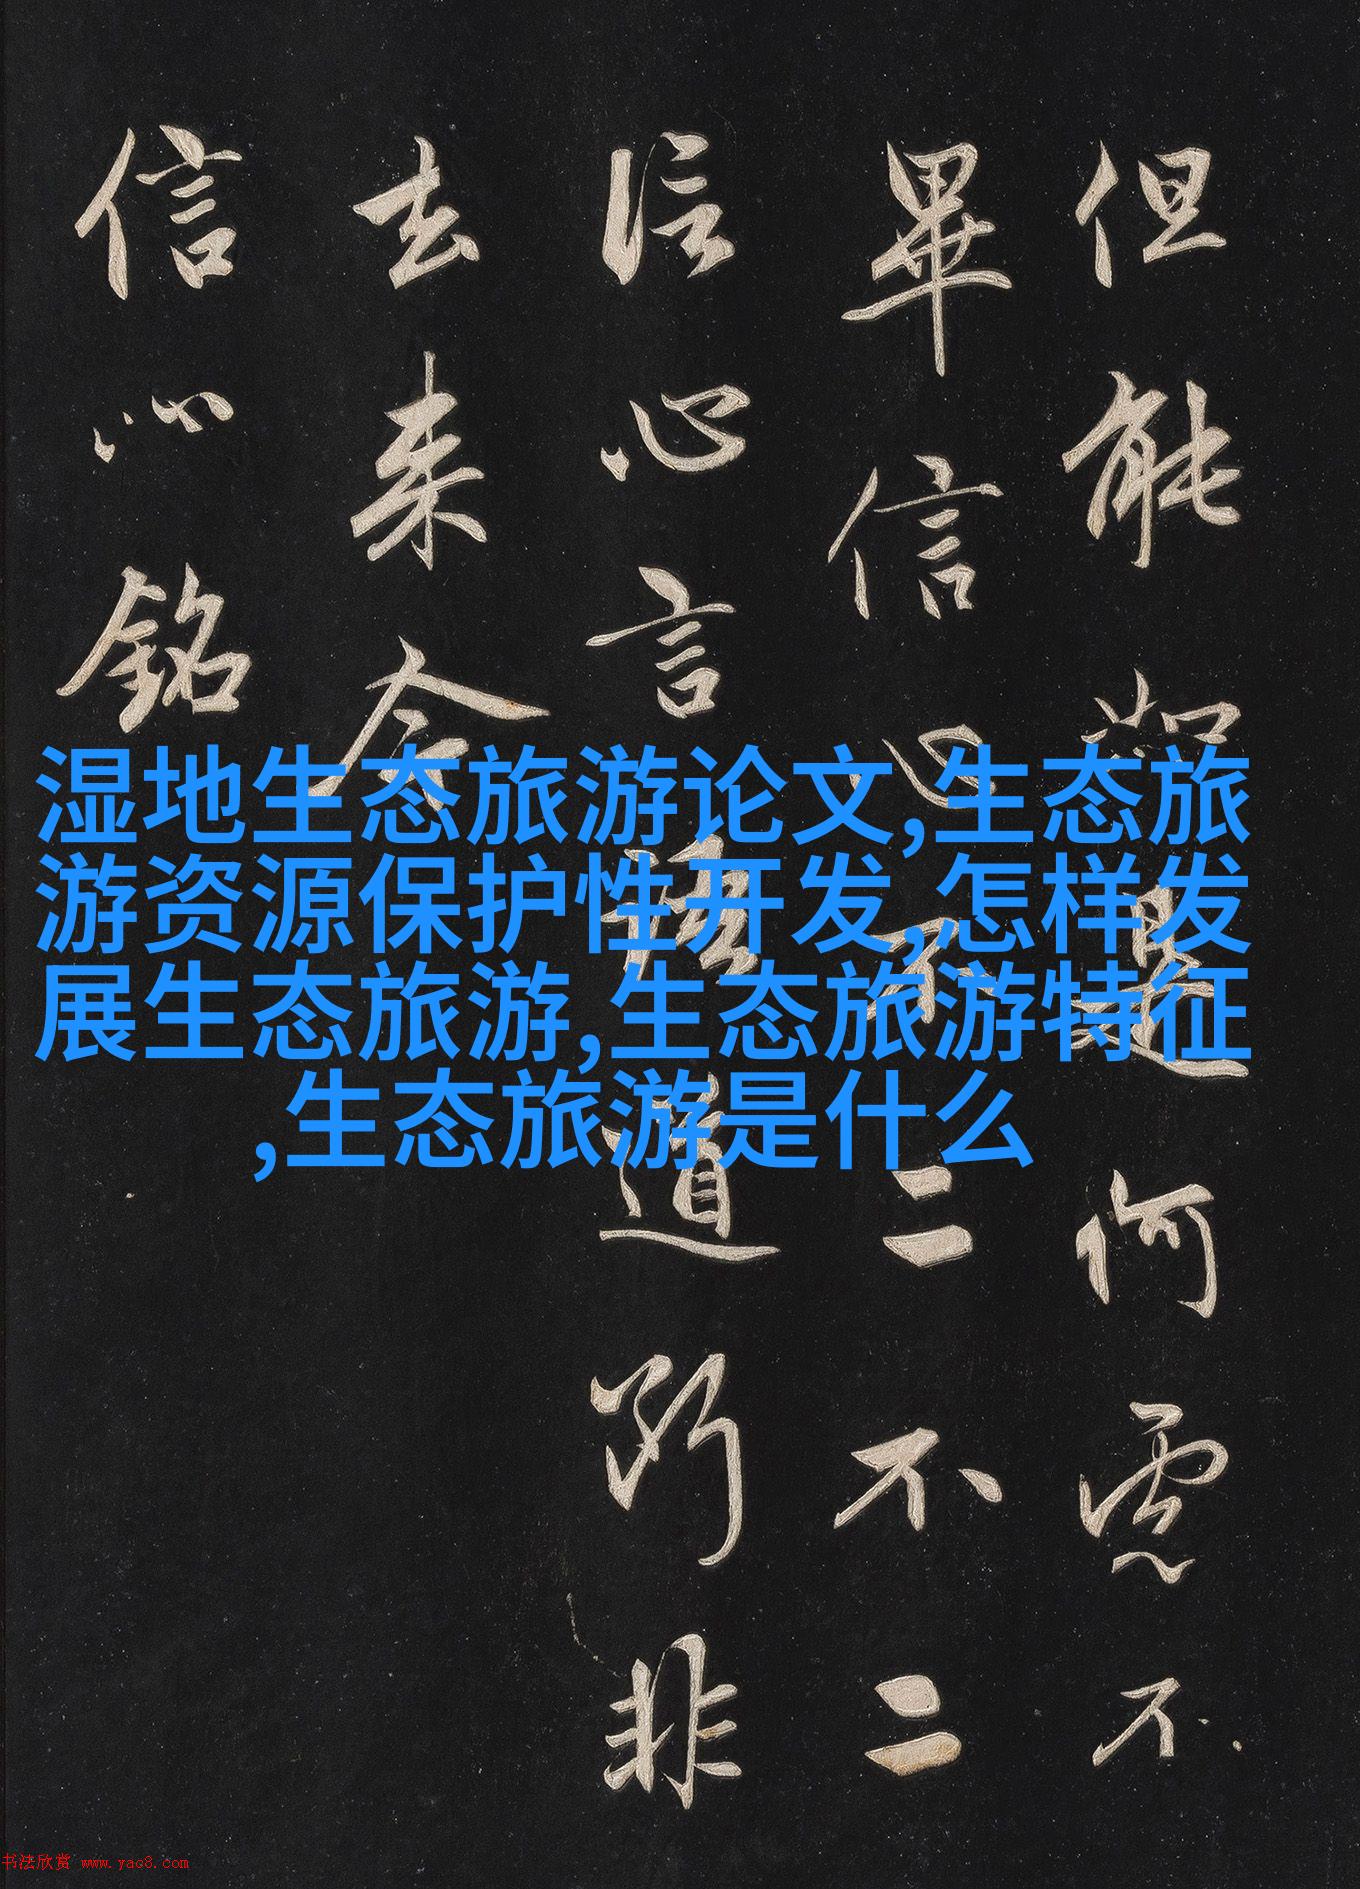 但能如是何慮不
畢信心不二不二
信心言語道斷非
去来今
信心銘
湿地生态旅游论文,生态旅
游资源保护性开发,怎样发
展生态旅游,生态旅游特征
,生态旅游是什么
书法欣赏 www.yac8.com